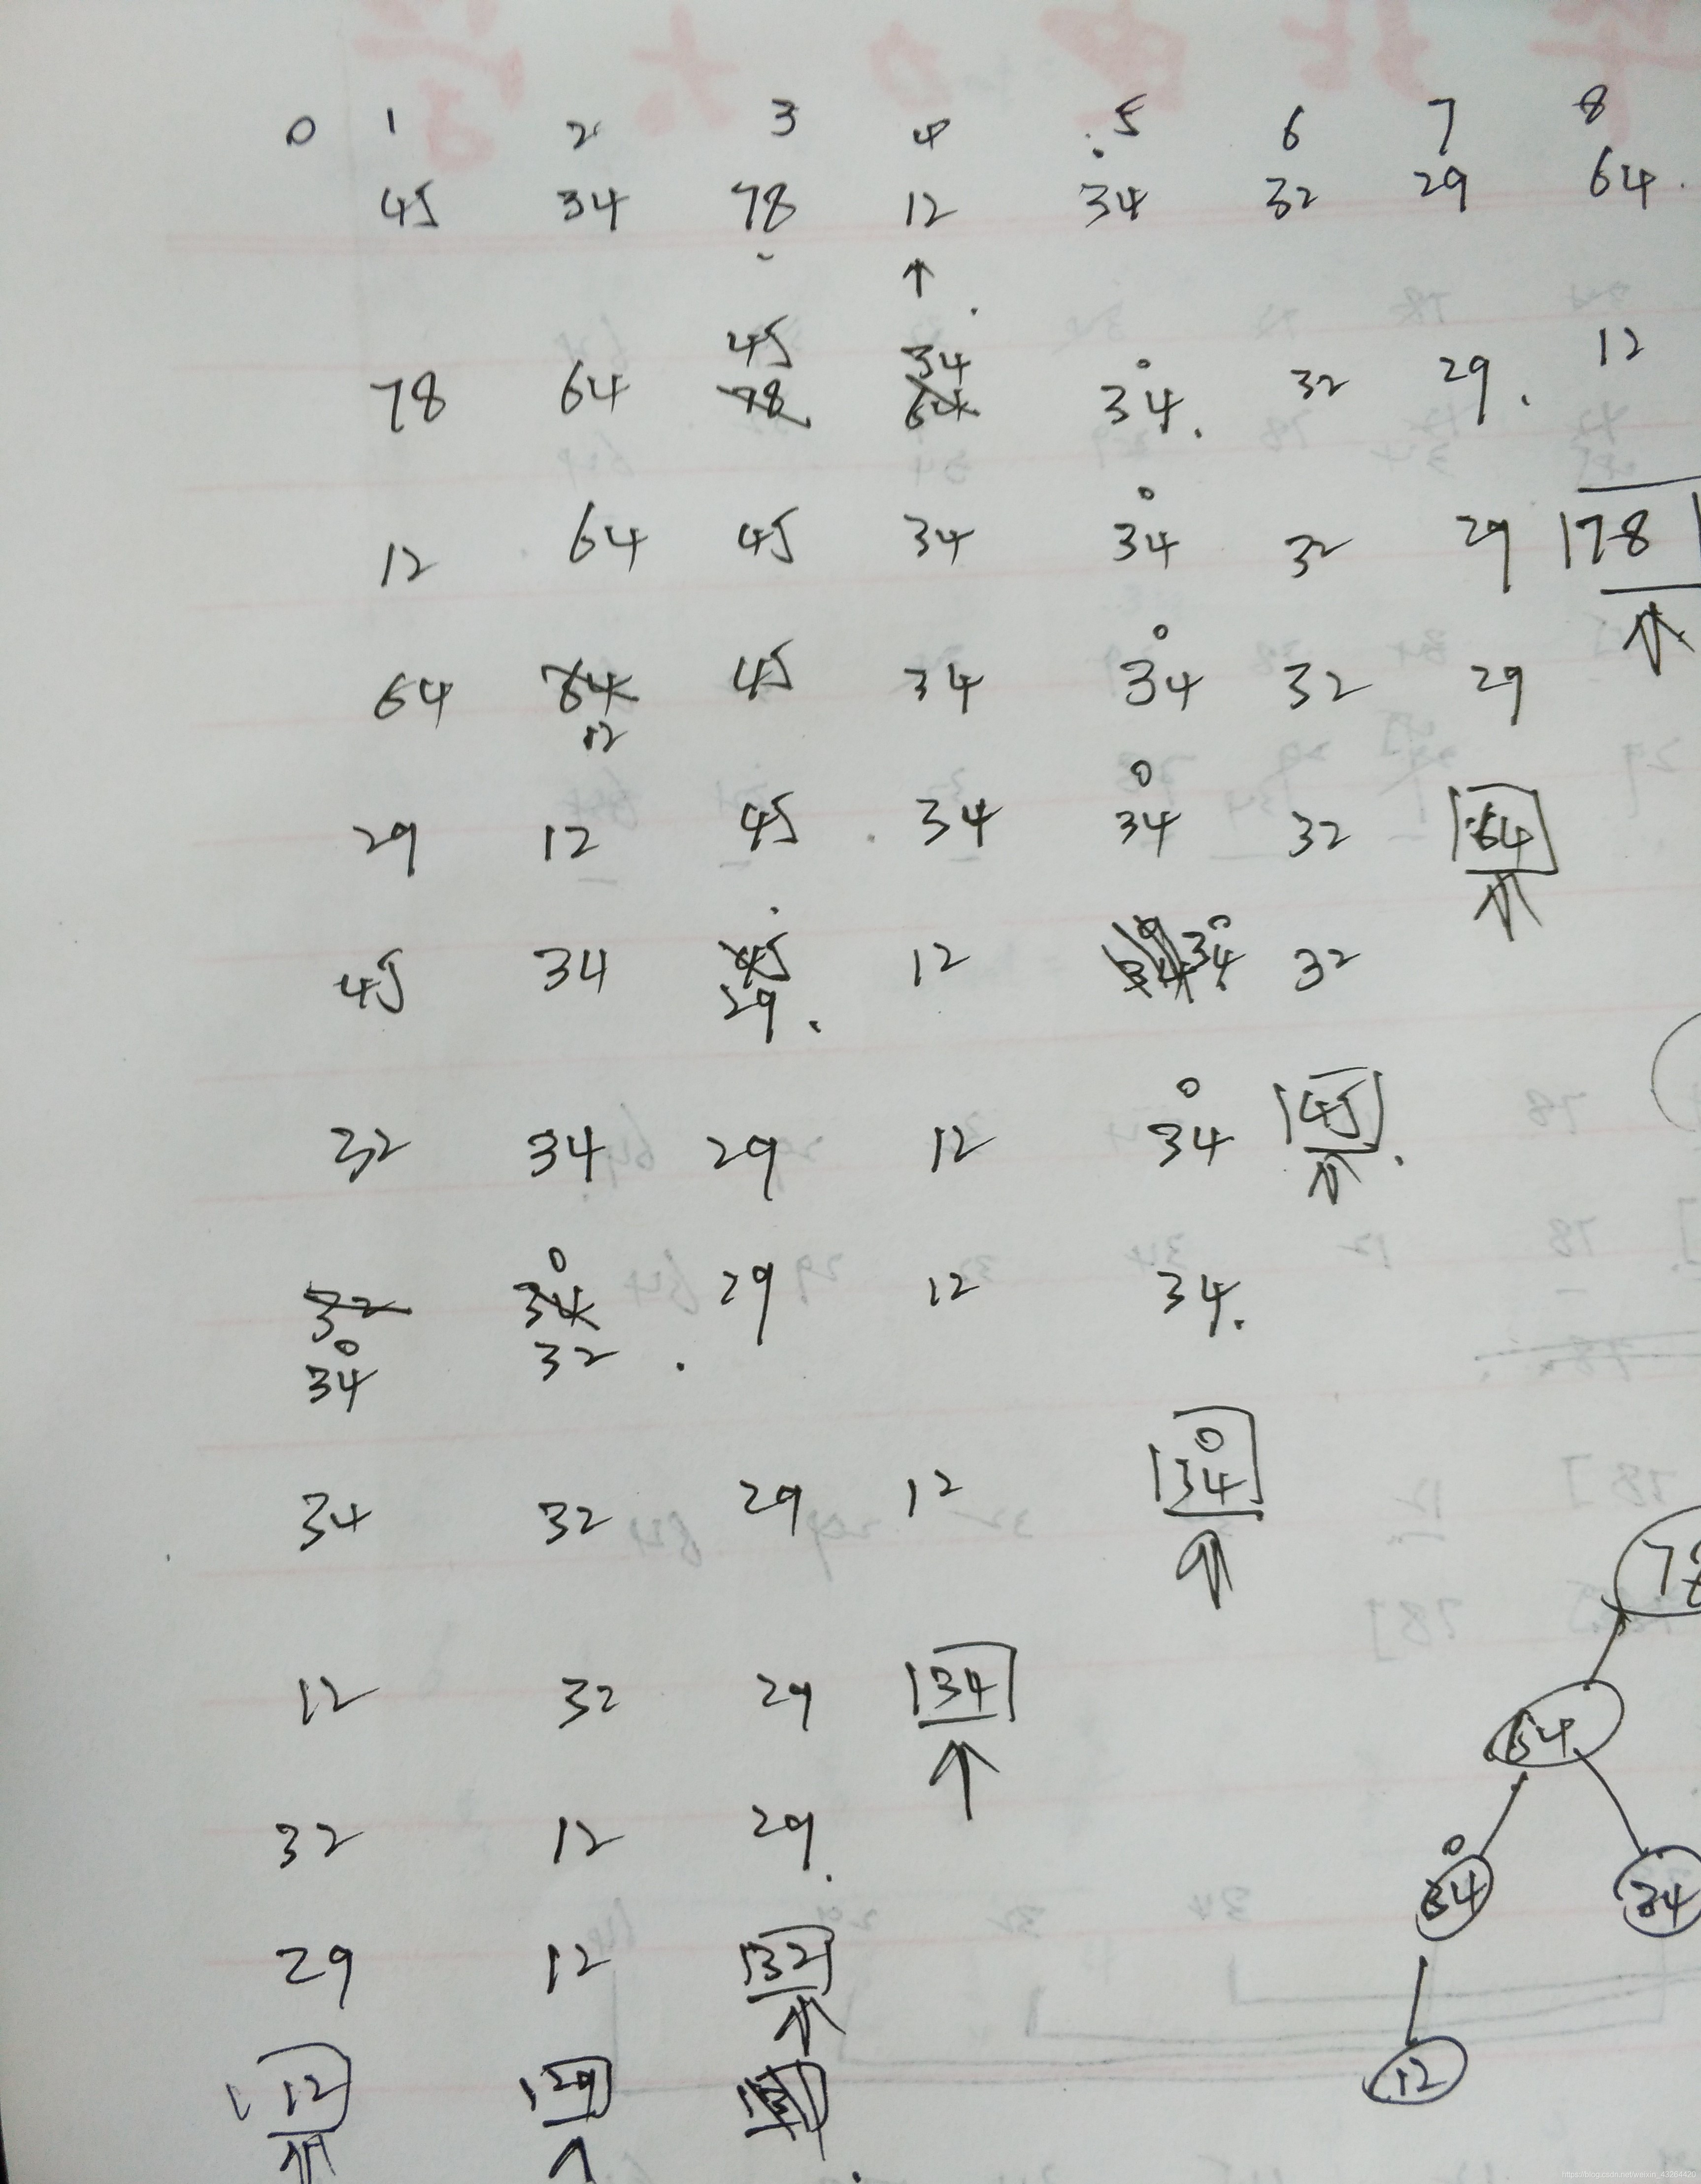 0 1 2 3 4 5 6 7 8
45 34 78 12 34 32 29 64
↑
45 34 0 12
78 64 78 64 34 32 29
0
12 64 45 34 34 32 29 78
0
64 64 45 34 34 32 29
12
0
29 12 45 34 34 32 64
0
45 34 45 12 34 34 32
29
0
32 34 29 12 34 45
0
32 34 29 12 34
0
34 32
0
34 32 29 12 34
78
12 32 29 34
64
32 12 29
0
34 34
29 12 32
12
12 29
https://blog.csdn.net/weixin_43264420